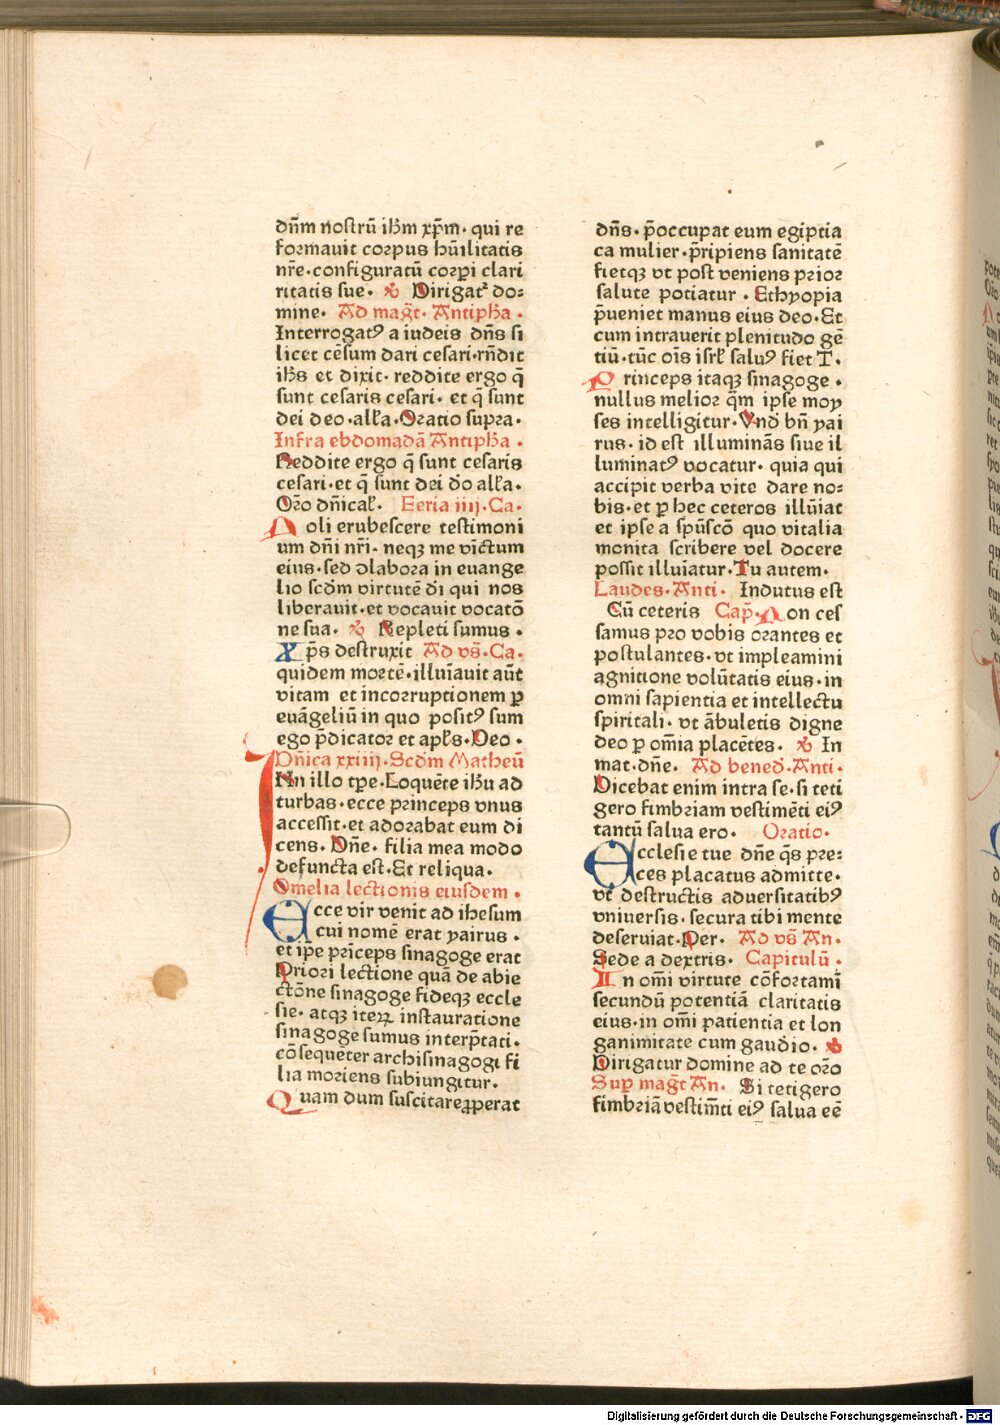 dn̄m nostrū ihm̄ xp̄m· qui re
formauit corpus hūilitatis
nr̄e·configuratū corp̄i clari
ritatis sue· ℟ Dirigat² do:
mine· Ad maḡt· Antiph̄a·
Interrogatꝰ a iudeis dn̄s si
licet cēsum dari cesari·rn̄dit
ih̄s et dixit· reddite ergo q̄
sunt cesaris cesari· et q̄ sunt
dei deo·all̄a·Oratio supra·
Infra ebdomadā Antiph̄a·
Reddite ergo q̄ sunt cesaris
cesari·et q̄ sunt dei do all̄a·
Or̄o dn̄ical̄· Feria iiij·Ca·
Noli erubescere testimoni
um dn̄i nr̄i· neqꝫ me vīctum
eius·sed ɔlabora in euange
lio scd̄m virtutē di qui nos
liberauit·et vocauit vocatō
ne sua· ℟ Repleti sumus·
Xp̄s destruxit Ad vs̄·Ca·
quidem mortē·illuīauit aūt
vitam et incorruptionem ꝑ
euāgeliū in quo positꝰ sum
ego p̄dicator et apl̄s·Deo·
Dn̄ica xxiiij·Scd̄m Matheū
IN illo tp̄e·Loquēte ihū ad
turbas·ecce princeps vnus
accessit·et adorabat eum di
cens· Dn̄e· filia mea modo
defuncta est·Et reliqua·
Omelia lectionis eiusdem·
Ecce vir venit ad ihesum
cui nomē erat yairus·
et ip̄e prīceps sinagoge erat
Priori lectione quā de abie
ctōne sinagoge fideqꝫ eccle
sie· atqꝫ iteꝝ instauratione
sinagoge sumus interp̄tati·
cōsequēter archisinagogi fi
lia moriens subiungitur·
Quam dum suscitare ꝓperat
dn̄s· p̄occupat eum egiptia
ca mulier·p̄ripiens sanitatē
fietqꝫ vt post veniens prior
salute potiatur· Ethyopia
p̄ueniet manus eius deo·Et
cum intrauerit plenitudo gē
tiū·tūc oīs isrl̄ saluꝰ fiet T·
Princeps itaqꝫ sinagoge·
nullus melior q̄m ipse moy
ses intelligitur·Vnd bn̄ yai
rus· id est illuminās siue il
luminatꝰ vocatur· quia qui
accipit verba vite dare no:
bis·et ꝑ hec ceteros illūiat
et ipse a spūscō quo vitalia
monita scribere vel docere
possit illuīatur·Tu autem·
Laudes·Anti· Indutus est
Cū ceteris Cap̄·Non ces
samus pro vobis orantes et
postulantes·vt impleamini
agnitione volūtatis eius·in
omni sapientia et intellectu
spiritali· vt ābuletis digne
deo ꝑ om̄ia placētes· ℟ In
mat·dn̄e· Ad bened·Anti·
Dicebat enim intra se·si teti
gero fimbriam vestimēti eiꝰ
tantū salua ero· Oratio·
Ecclesie tue dn̄e q̄s pre:
ces placatus admitte·
vt destructis aduersitatibꝰ
vniuersis·secura tibi mente
deseruiat·Per· Ad vs̄ An·
Sede a dextris· Capitulū·
In om̄i virtute cōfortami
secundū potentiā claritatis
eius·in om̄i patientia et lon
ganimitate cum gaudio· ℟
Dirigatur domine ad te or̄o
Sup maḡt An· Si tetigero
fimbriā vestim̄ti eiꝰ salua eē
Digitalisierung gefördert durch die Deutsche Forschungsgemeinschaft - DFG